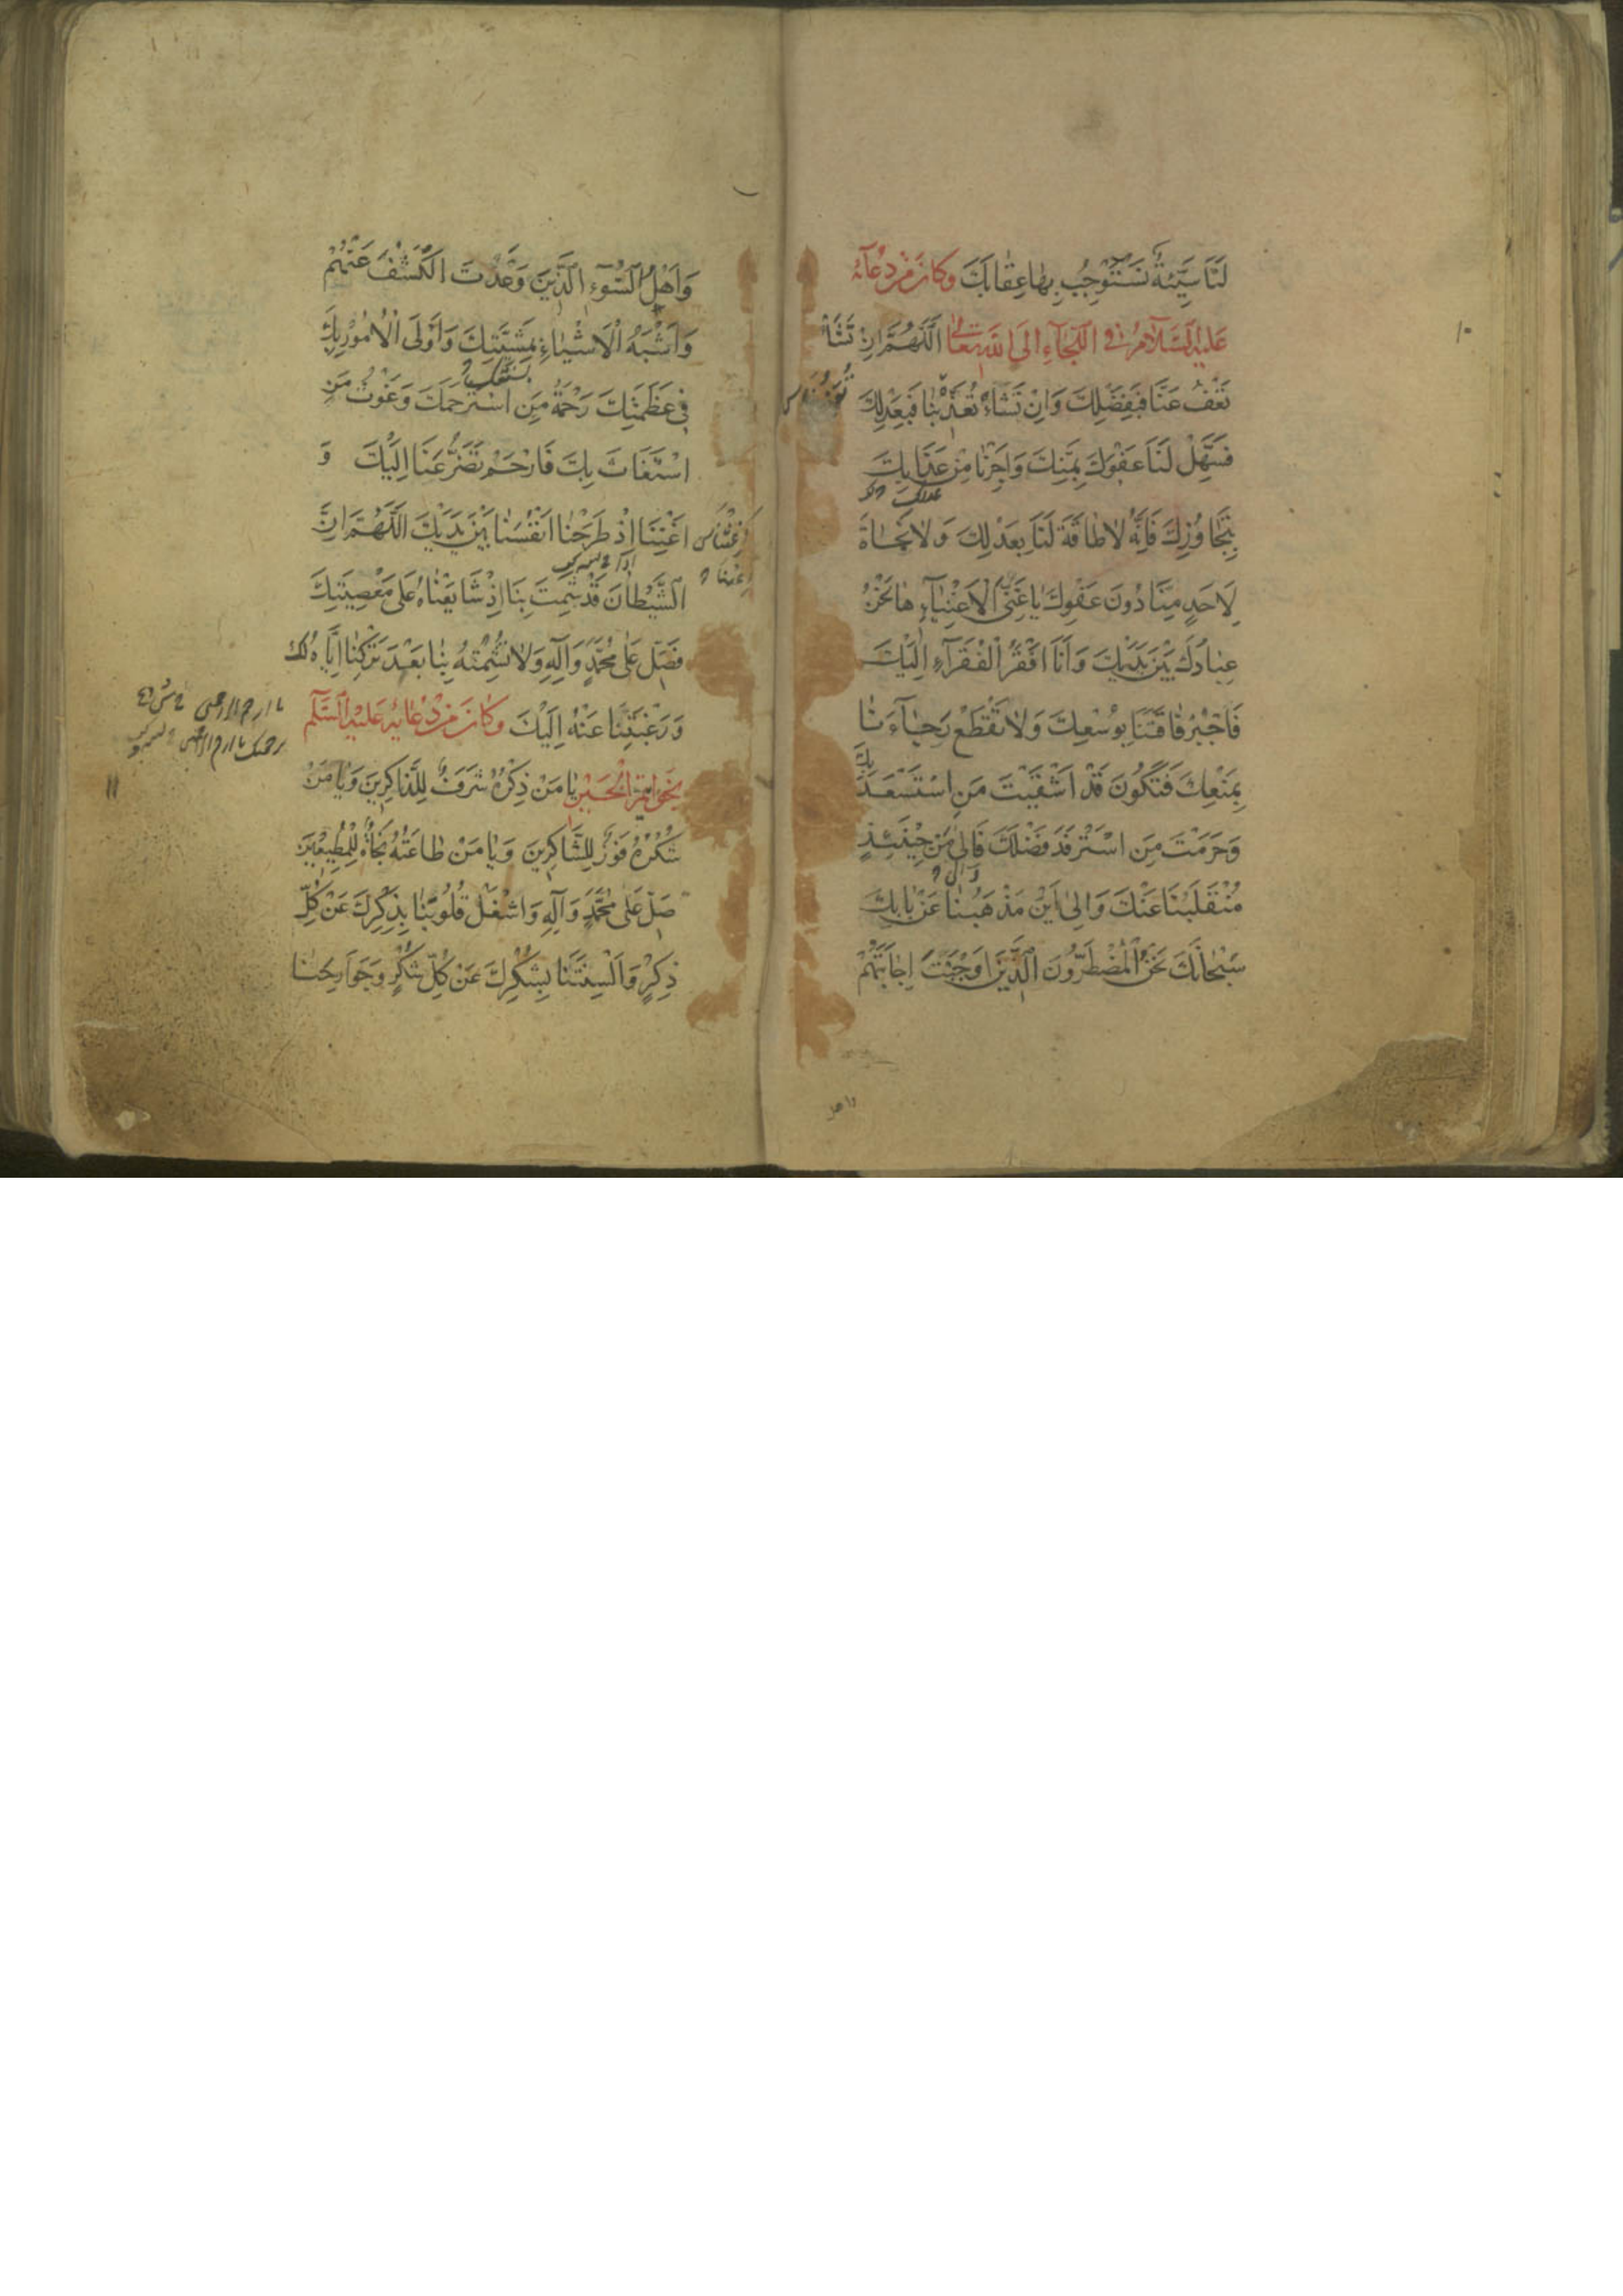 لَنَا سَيِّئَةٌ نَسْتَوْجِبُ بِهَا عِقَابَكَ وَكَانَ مِنْ دُعَآئِهِ
عَلَيْهِ السَّلَامُ فِي اللَّجَاءِ اِلَى اللهِ تَعَالٰى اَللّٰهُمَّ اِنْ تَشَأْ
تَعْفُ عَنَّا فَبِفَضْلِكَ وَاِنْ تَشَاءْ تُعَذِّبْنَا فَبِعَدْلِكَ
فَسَهِّلْ لَنَا عَفْوَكَ بِمَنِّكَ وَاَجِرْنَا مِنْ عَذَابِكَ
بِتَجَاوُزِكَ فَاِنَّهُ لَا طَاقَةَ لَنَا بِعَدْلِكَ وَلَا نَجَاةَ
لِاَحَدٍ مِنَّا دُونَ عَفْوِكَ يَا غَنِيَّ الْاَغْنِيَآءِ هَا نَحْنُ
عِبَادُكَ بَيْنَ يَدَيْكَ وَاَنَا اَفْقَرُ الْفُقَرَآءِ اِلَيْكَ
فَاجْبُرْ فَاقَتَنَا بِوُسْعِكَ وَلَا تَقْطَعْ رَجَآءَنَا
بِمَنْعِكَ فَتَكُونَ قَدْ اَشْقَيْتَ مَنِ اسْتَسْعَدَ بِكَ
وَحَرَمْتَ مَنِ اسْتَرْفَدَ فَضْلَكَ فَاِلٰى مَنْ حِينَئِذٍ
مُنْقَلَبُنَا عَنْكَ وَاِلٰى اَيْنَ مَذْهَبُنَا عَنْ بَابِكَ
سُبْحَانَكَ نَحْنُ الْمُضْطَرُّونَ الَّذِينَ اَوْجَبْتَ اِجَابَتَهُمْ
١٠
وَاَهْلُ السُّوءِ الَّذِينَ وَعَدْتَ الْكَشْفَ عَنْهُمْ
وَاَشْبَهُ الْاَشْيَاءِ بِمَشِيَّتِكَ وَاَوْلَى الْاُمُورِ بِكَ
فِي عَظَمَتِكَ رَحْمَةُ مَنِ اسْتَرْحَمَكَ وَغَوْثُ مَنِ
اسْتَغَاثَ بِكَ فَارْحَمْ تَضَرُّعَنَا اِلَيْكَ وَ
اَغْنِنَا اِذْ طَرَحْنَا اَنْفُسَنَا بَيْنَ يَدَيْكَ اَللّٰهُمَّ اِنَّ
الشَّيْطَانَ قَدْ شَمِتَ بِنَا اِذْ شَايَعْنَاهُ عَلٰى مَعْصِيَتِكَ
فَصَلِّ عَلٰى مُحَمَّدٍ وَآلِهِ وَلَا تُشْمِتْهُ بِنَا بَعْدَ تَرْكِنَا اِيَّاهُ لَكَ
وَرَغْبَتِنَا عَنْهُ اِلَيْكَ وَكَانَ مِنْ دُعَائِهِ عَلَيْهِ السَّلَم
بِخَوَاتِمِ الْخَيْرِ يَا مَنْ ذِكْرُهُ شَرَفٌ لِلذَّاكِرِينَ وَيَا مَنْ
شُكْرُهُ فَوْزٌ لِلشَّاكِرِينَ وَيَا مَنْ طَاعَتُهُ نَجَاةٌ لِلْمُطِيعِينَ
صَلِّ عَلٰى مُحَمَّدٍ وَآلِهِ وَاشْغَلْ قُلُوبَنَا بِذِكْرِكَ عَنْ كُلِّ
ذِكْرٍ وَاَلْسِنَتَنَا بِشُكْرِكَ عَنْ كُلِّ شُكْرٍ وَجَوَارِحَنَا
يا ارحم الراحمين
برحمتك يا ارحم الراحمين
١١